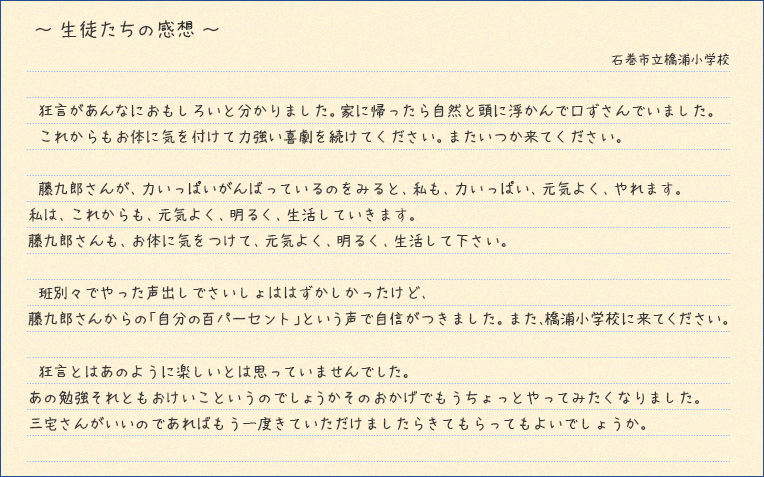 ～ 生徒たちの感想 ～
石巻市立橋浦小学校
狂言があんなにおもしろいと分かりました。家に帰ったら自然と頭に浮かんで口ずさんでいました。
これからもお体に気を付けて力強い喜劇を続けてください。またいつか来てください。
藤九郎さんが、力いっぱいがんばっているのをみると、私も、力いっぱい、元気よく、やれます。
私は、これからも、元気よく、明るく、生活していきます。
藤九郎さんも、お体に気をつけて、元気よく、明るく、生活して下さい。
班別々でやった声出しでさいしょははずかしかったけど、
藤九郎さんからの「自分の百パーセント」という声で自信がつきました。また、橋浦小学校に来てください。
狂言とはあのように楽しいとは思っていませんでした。
あの勉強それともおけいこというのでしょうかそのおかげでもうちょっとやってみたくなりました。
三宅さんがいいのであればもう一度きていただけましたらきてもらってもよいでしょうか。